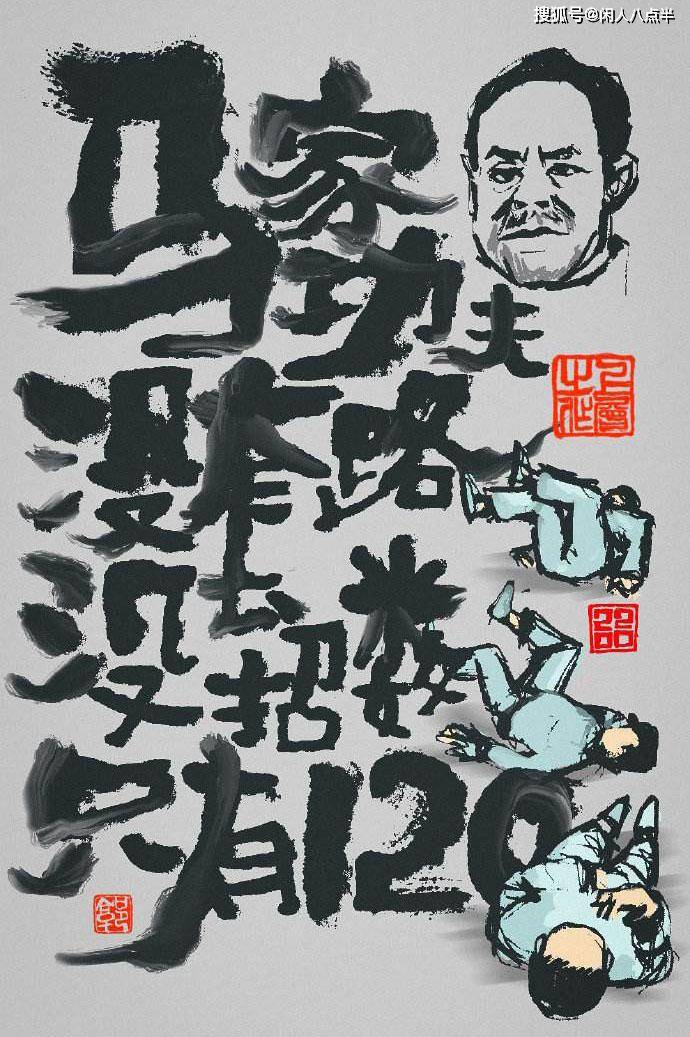 搜狐号@闲人八点半
马家
功夫
没套路
没招数
只有120